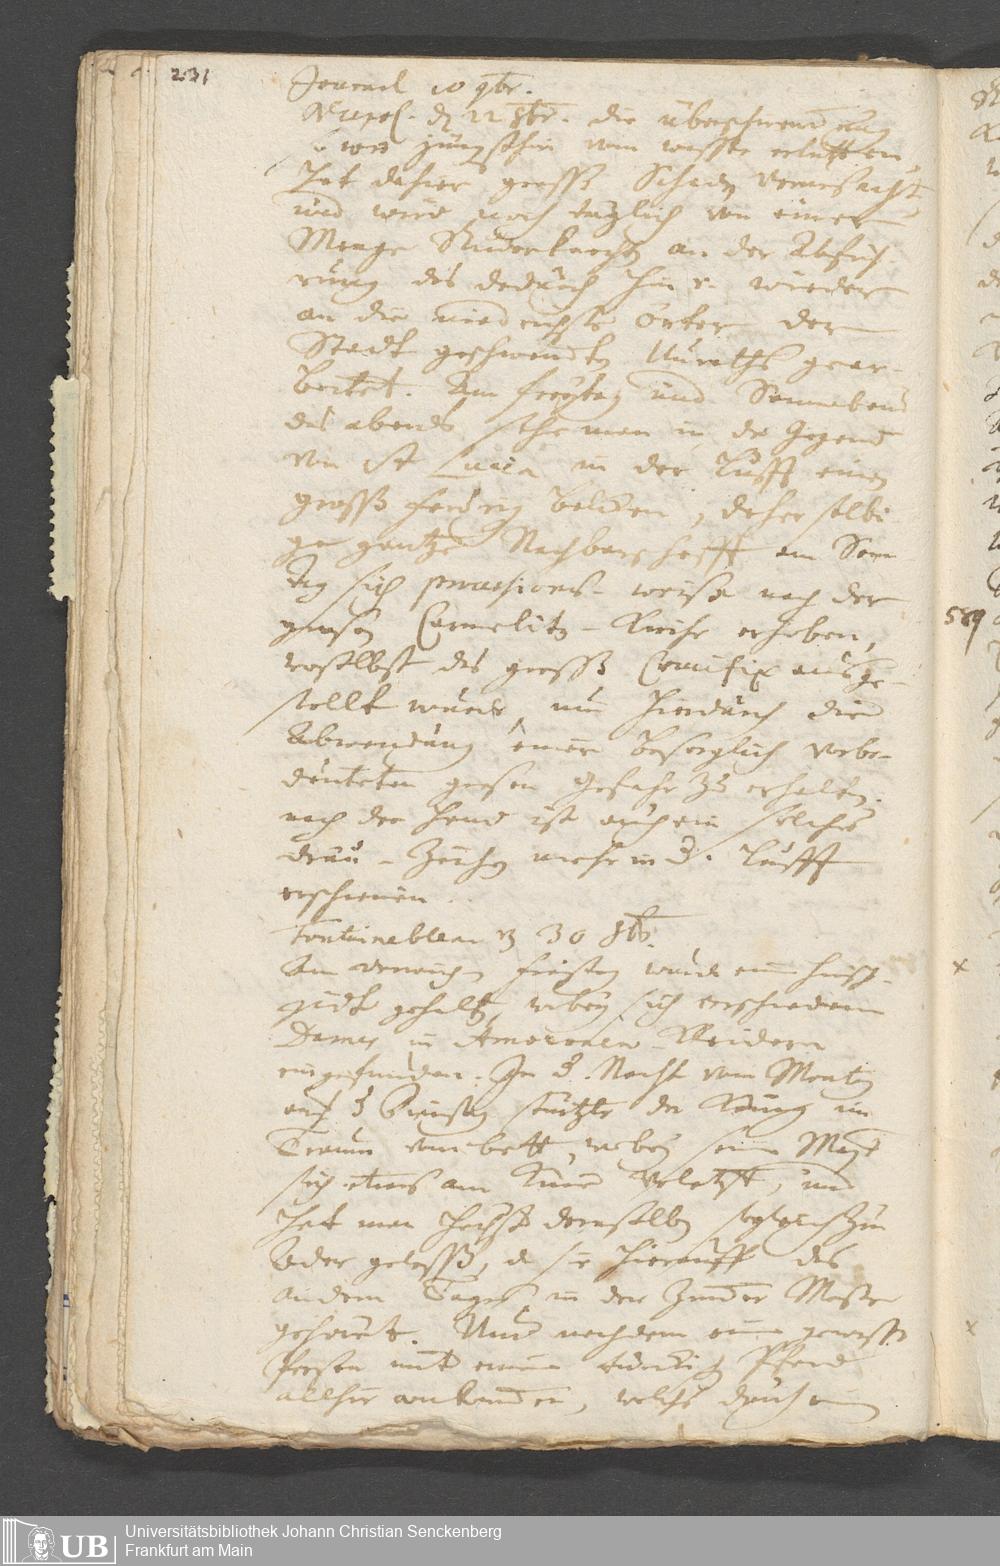 231
Journal 10 9br.
Napol. d 22 8br. die überschwemmung
so wir jüngsthin vom wasser erlitten,
hat dahier grosse Schaden verursacht
und wird noch täglich von einer
Menge Ruderknecht an der Abfüh-
rung des dadurch hin v. wieder
an die niedrigste örter der
Stadt geschwemten Unraths gear-
beitet. Am freytag und Sonnabend
des abends sahe man in der Gegend
von St Lucia in der Lufft einen
grosse feurig balcken, daher selbi-
ge gantze Nachbarschafft am Son-
tag sich processions-weise nach der
grosen Carmeliter-Kirche erhoben,
woselbst das grosse Crucifix ausge-
stellt wurde, um hierdurch die
Abwendung einer besorglich vorbe-
deuteten grosen Gefahr zu erhalten.
nach der Hand ist auch ein solches
Zeichen mehr in d. Lufft
erschienen.
Fontainebleau 30 8br.
Am wurde eine
gehalten, wobey sich verschiedene
Dames in Amazonen Kleidern
eingefunden. In d. Nacht vom Montag
auf d Dienstag stürtzte der König im
Traum vom bett, wobey seine Mayt
sich etwas am verletzt, und
hat man deroselben sogleich zur
Ader gelassen, sie hierauff des
andern Tages in der Zimmer Messe
gehöret. Und nachdem eine gewisse
Person mit einem Pferd
allhier ankommen, welches durch
589
Universitätsbibliothek Johann Christian Senckenberg
Frankfurt am Main
UB